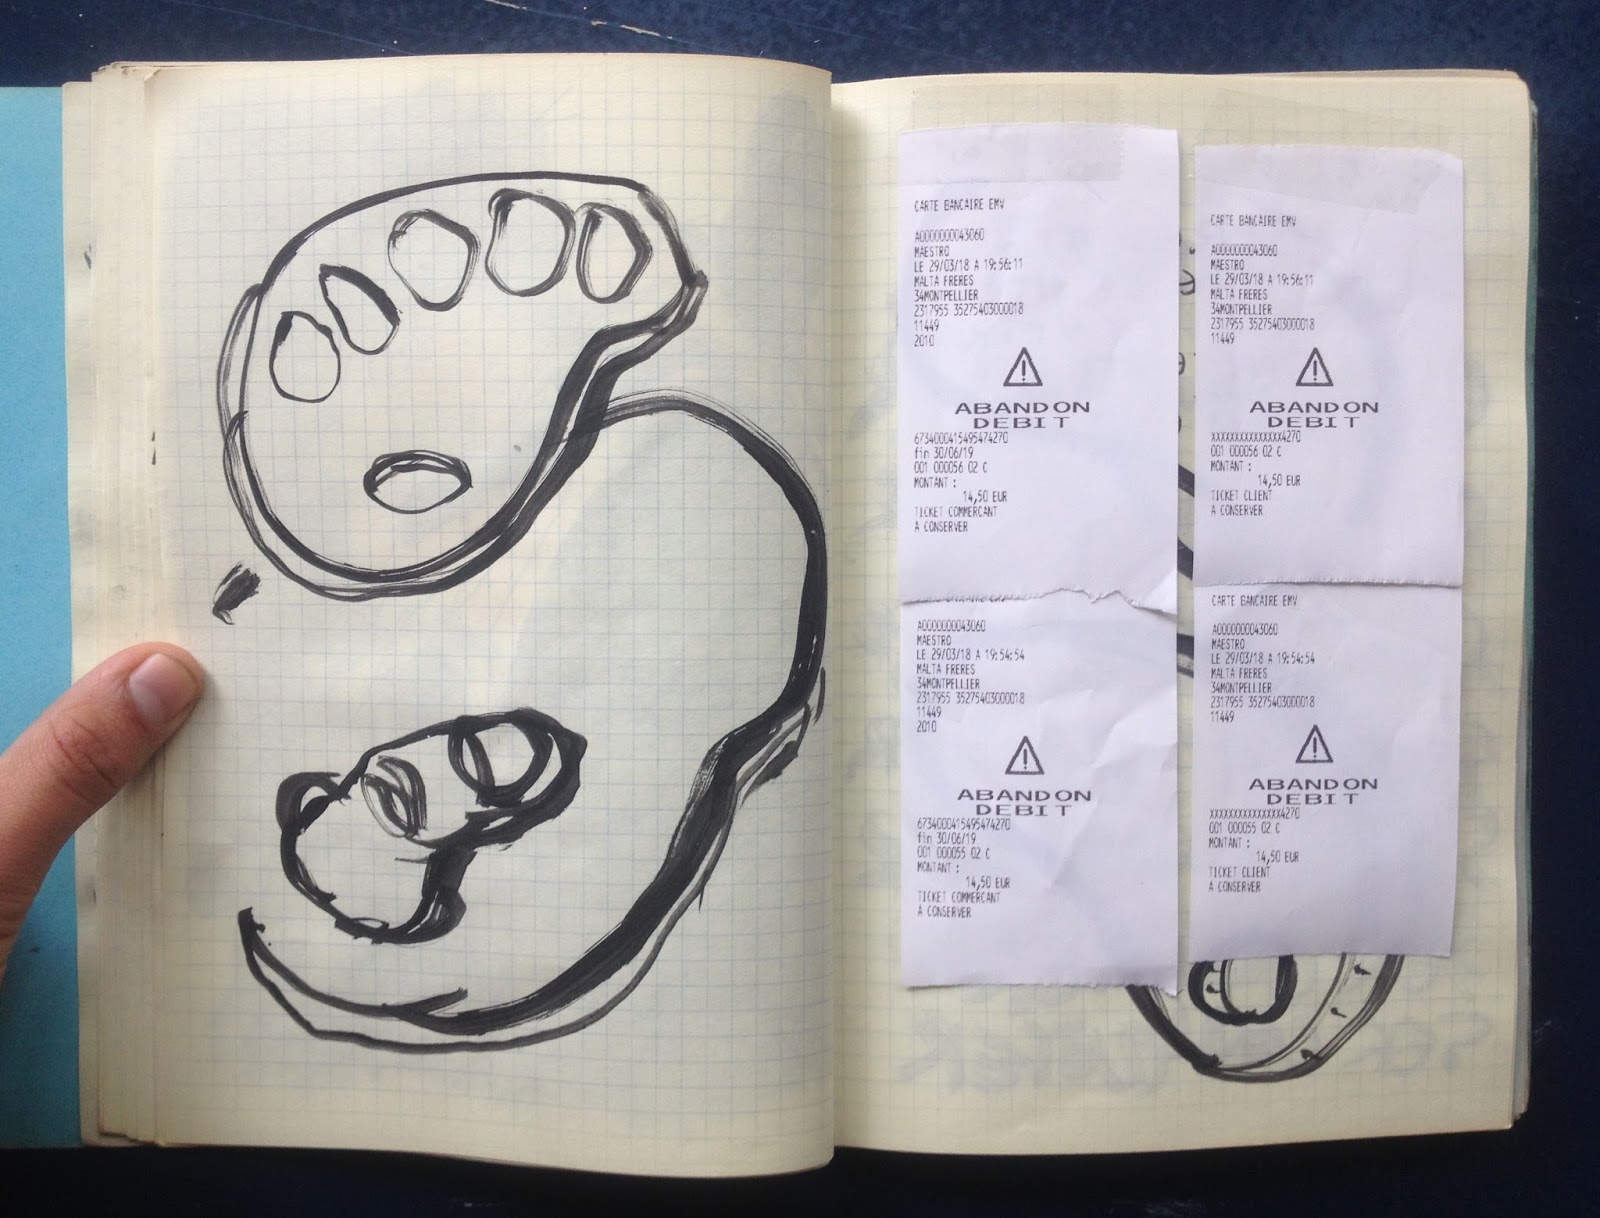 CARTE BANCAIRE EMV
A0000000043060
MAESTRO
LE 29/03/18 A 19:56:11
MALTA FRERES
34MONTPELLIER
2317955 35275403000018
11449
2010
ABANDON
DEBIT
6734000415495474270
fin 30/06/19
001 000056 02 C
MONTANT :
14,50 EUR
TICKET COMMERCANT
A CONSERVER
A0000000043060
MAESTRO
LE 29/03/18 A 19:54:54
MALTA FRERES
34MONTPELLIER
2317955 35275403000018
11449
2010
ABANDON
DEBIT
6734000415495474270
fin 30/06/19
001 000055 02 C
MONTANT :
14,50 EUR
TICKET COMMERCANT
A CONSERVER
CARTE BANCAIRE EMV
A0000000043060
MAESTRO
LE 29/03/18 A 19:56:11
MALTA FRERES
34MONTPELLIER
2317955 35275403000018
11449
ABANDON
DEBIT
XXXXXXXXXXXXXXX4270
001 000056 02 C
MONTANT :
14,50 EUR
TICKET CLIENT
A CONSERVER
CARTE BANCAIRE EMV
A0000000043060
MAESTRO
LE 29/03/18 A 19:54:54
MALTA FRERES
34MONTPELLIER
2317955 35275403000018
11449
ABANDON
DEBIT
XXXXXXXXXXXXXXX4270
001 000055 02 C
MONTANT :
14,50 EUR
TICKET CLIENT
A CONSERVER